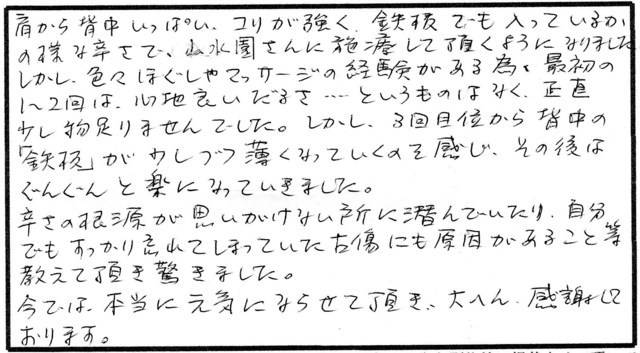 肩から背中いっぱい、コリが強く、鉄板でも入っているか
の様な辛さで、山水園さんに施療して頂くようになりました
しかし、色々ほぐしやマッサージの経験がある為、最初の
1〜2回は、心地良いだるさ…というものはなく、正直
少し物足りませんでした。しかし、3回目位から背中の
「鉄板」が少しづつ薄くなっていくのを感じ、その後は
ぐんぐんと楽になっていきました。
辛さの根源が思いがけない所に潜んでいたり、自分
でもすっかり忘れてしまっていた古傷にも原因があること等
教えて頂き驚きました。
今では、本当に元気にならせて頂き、大へん感謝して
おります。